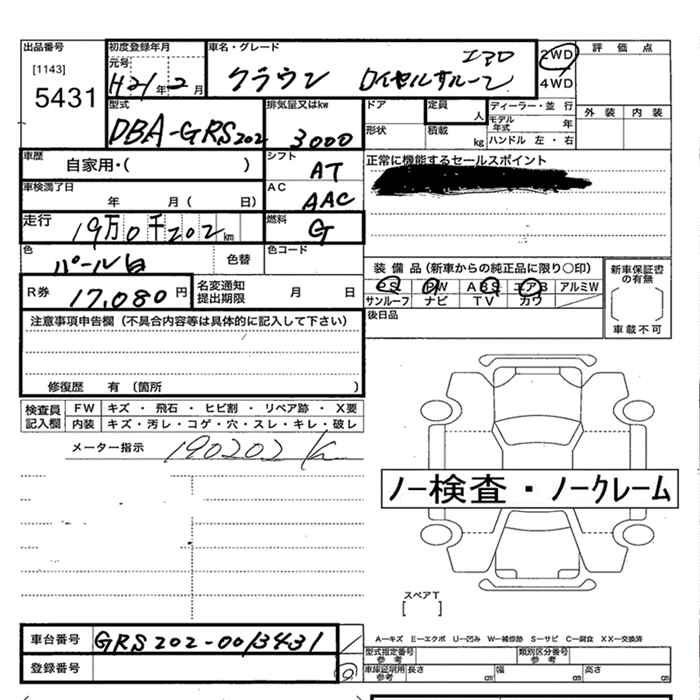 出品番号 初度登録年月 車名・グレード 2WD 評価点
[1143] 元号 4WD
5431 H21年2月 クラウン ロイヤルサルーン
型式 排気量又はkw ドア 定員 人 ディーラー・並行 外装 内装
DBA-GRS202 3000 形状 積載 kg モデル年式 年
ハンドル 左・右
車歴 自家用・( ) シフト AT 正常に機能するセールスポイント
車検満了日 年 月( 日) AC AAC
走行 19万0千202km 燃料 G
色 パール白 色替 色コード
装備品(新車からの純正品に限り○印) 新車保証書の有無
R券 17,080円 名変通知提出期限 月 日 PS PW ABS エアB アルミW
サンルーフ ナビ TV カワ 車載不可
注意事項申告欄(不具合内容等は具体的に記入して下さい) 後日品
修復歴 有(箇所 )
検査員記入欄 FW キズ・飛石・ヒビ割・リペア跡・X要
内装 キズ・汚レ・コゲ・穴・スレ・キレ・破レ
メーター指示 190202 K
ノー検査・ノークレーム
スペアT
[ ]
車台番号 GRS202-0013431 A―キズ E―エクボ U―凹み W―補修跡 S―サビ C―腐食 XX―交換済
型式指定番号 参考 類別区分番号 参考
登録番号 車庫証明用 参考 長さ cm 幅 cm 高さ cm